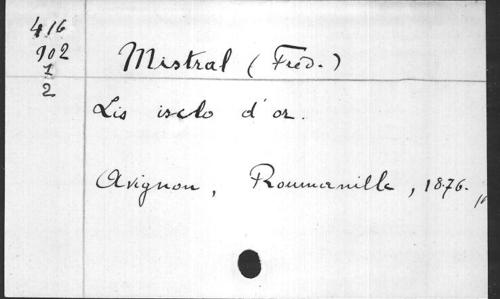 416
902
1
2
Mistral (Fred.)
Lis isclo d'or.
Avignon, Roumanille, 1876.